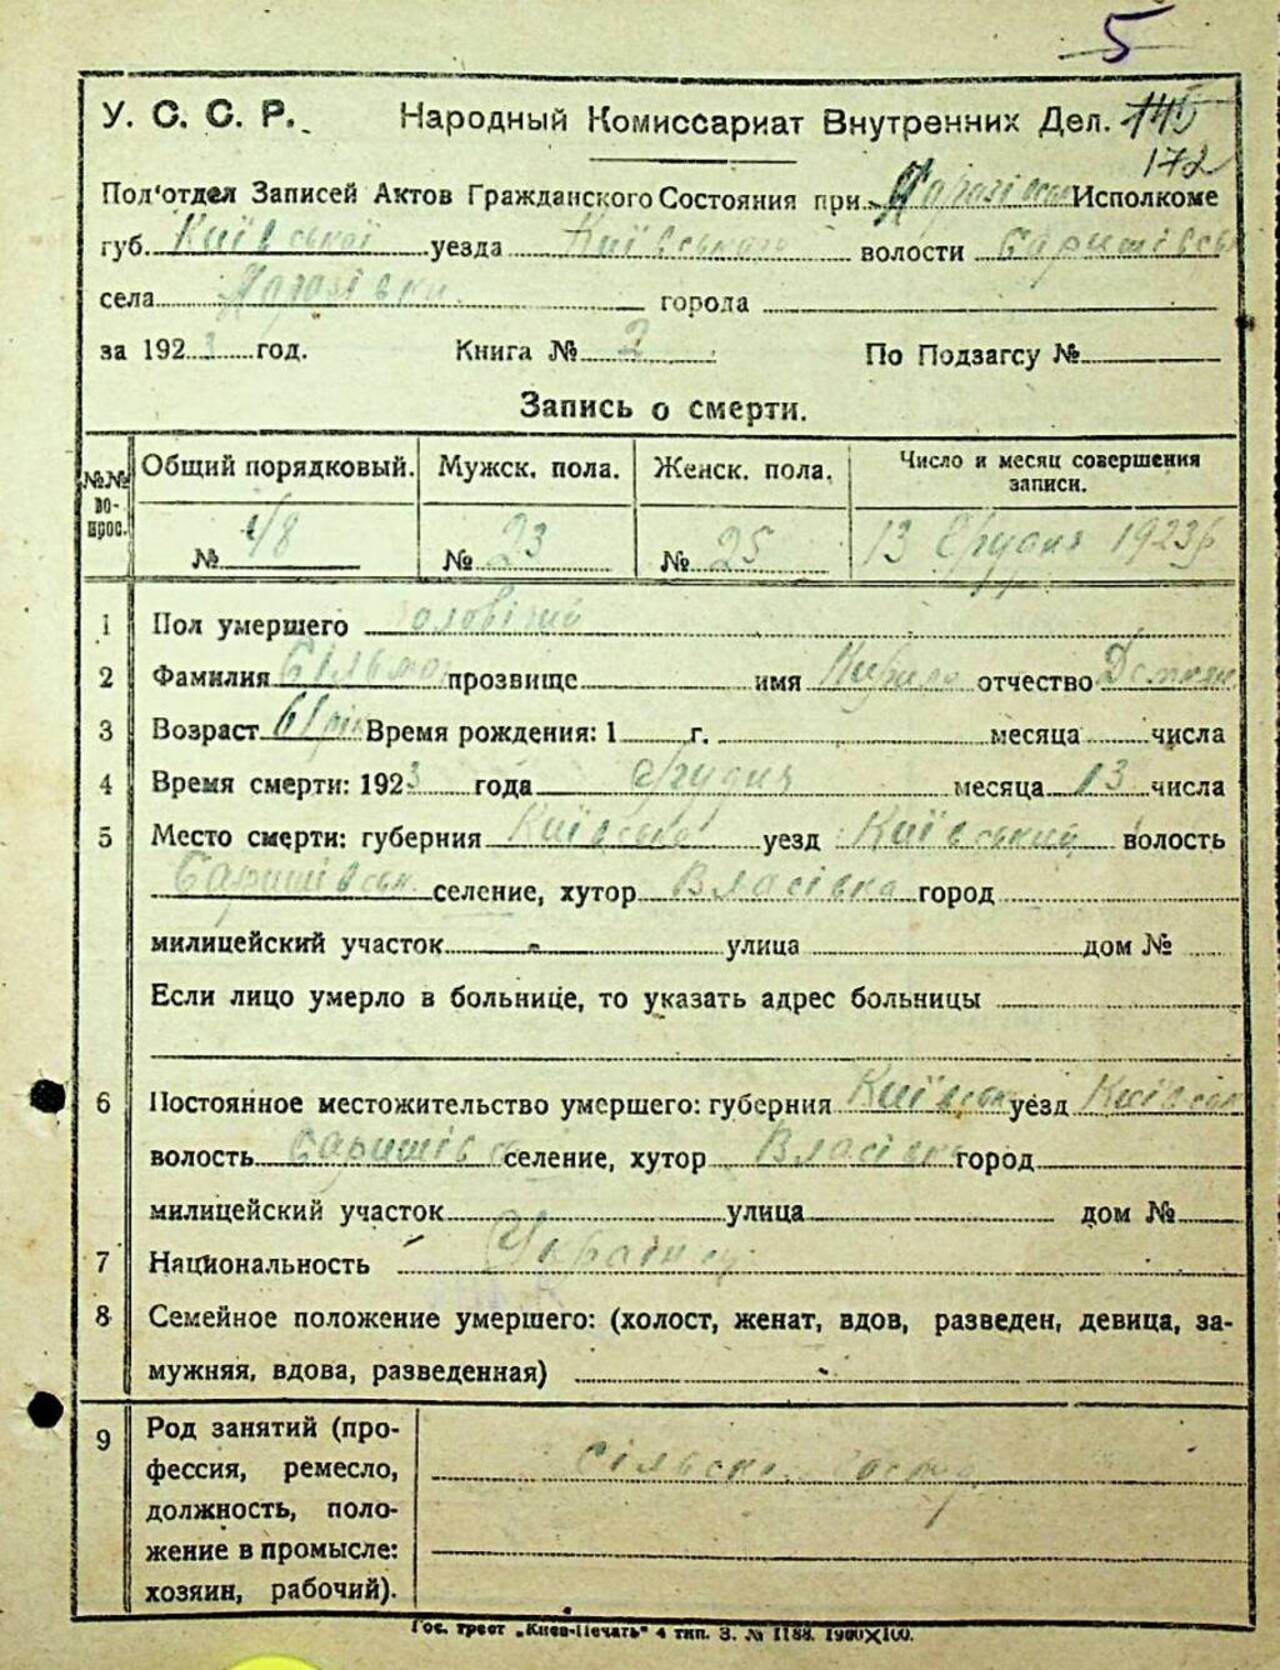 5
У. С. С. Р. Народный Комиссариат Внутренних Дел. 145
172
Под'отдел Записей Актов Гражданского Состояния при Исполкоме
губ. Київської уезда Київського волости Баришівсь
села города
за 1923 год. Книга № 2 По Подзагсу №
Запись о смерти.
№№ во-прос. Общий порядковый. Мужск. пола. Женск. пола. Число и месяц совершения записи.
№ 48 № 23 № 25 13 Грудня 1923 р
1 Пол умершего чоловічий
2 Фамилия прозвище имя Кирило отчество Демян
3 Возраст 61 рік Время рождения: 1 г. месяца числа
4 Время смерти: 1923 года Грудня месяца 13 числа
5 Место смерти: губерния Київська уезд Київський волость
Баришівськ селение, хутор Власівка город
милицейский участок - улица дом №
Если лицо умерло в больнице, то указать адрес больницы
6 Постоянное местожительство умершего: губерния Київськ уезд Київськ
волость Баришівс селение, хутор Власівка город
милицейский участок улица дом №
7 Национальность Українец
8 Семейное положение умершего: (холост, женат, вдов, разведен, девица, за-
мужняя, вдова, разведенная)
9 Род занятий (про-
фессия, ремесло, Сільське госпо
должность, поло-
жение в промысле:
хозяин, рабочий).
Гос. трест „Киев-Печать" 4 тип. З. № 1188. 1900X100.